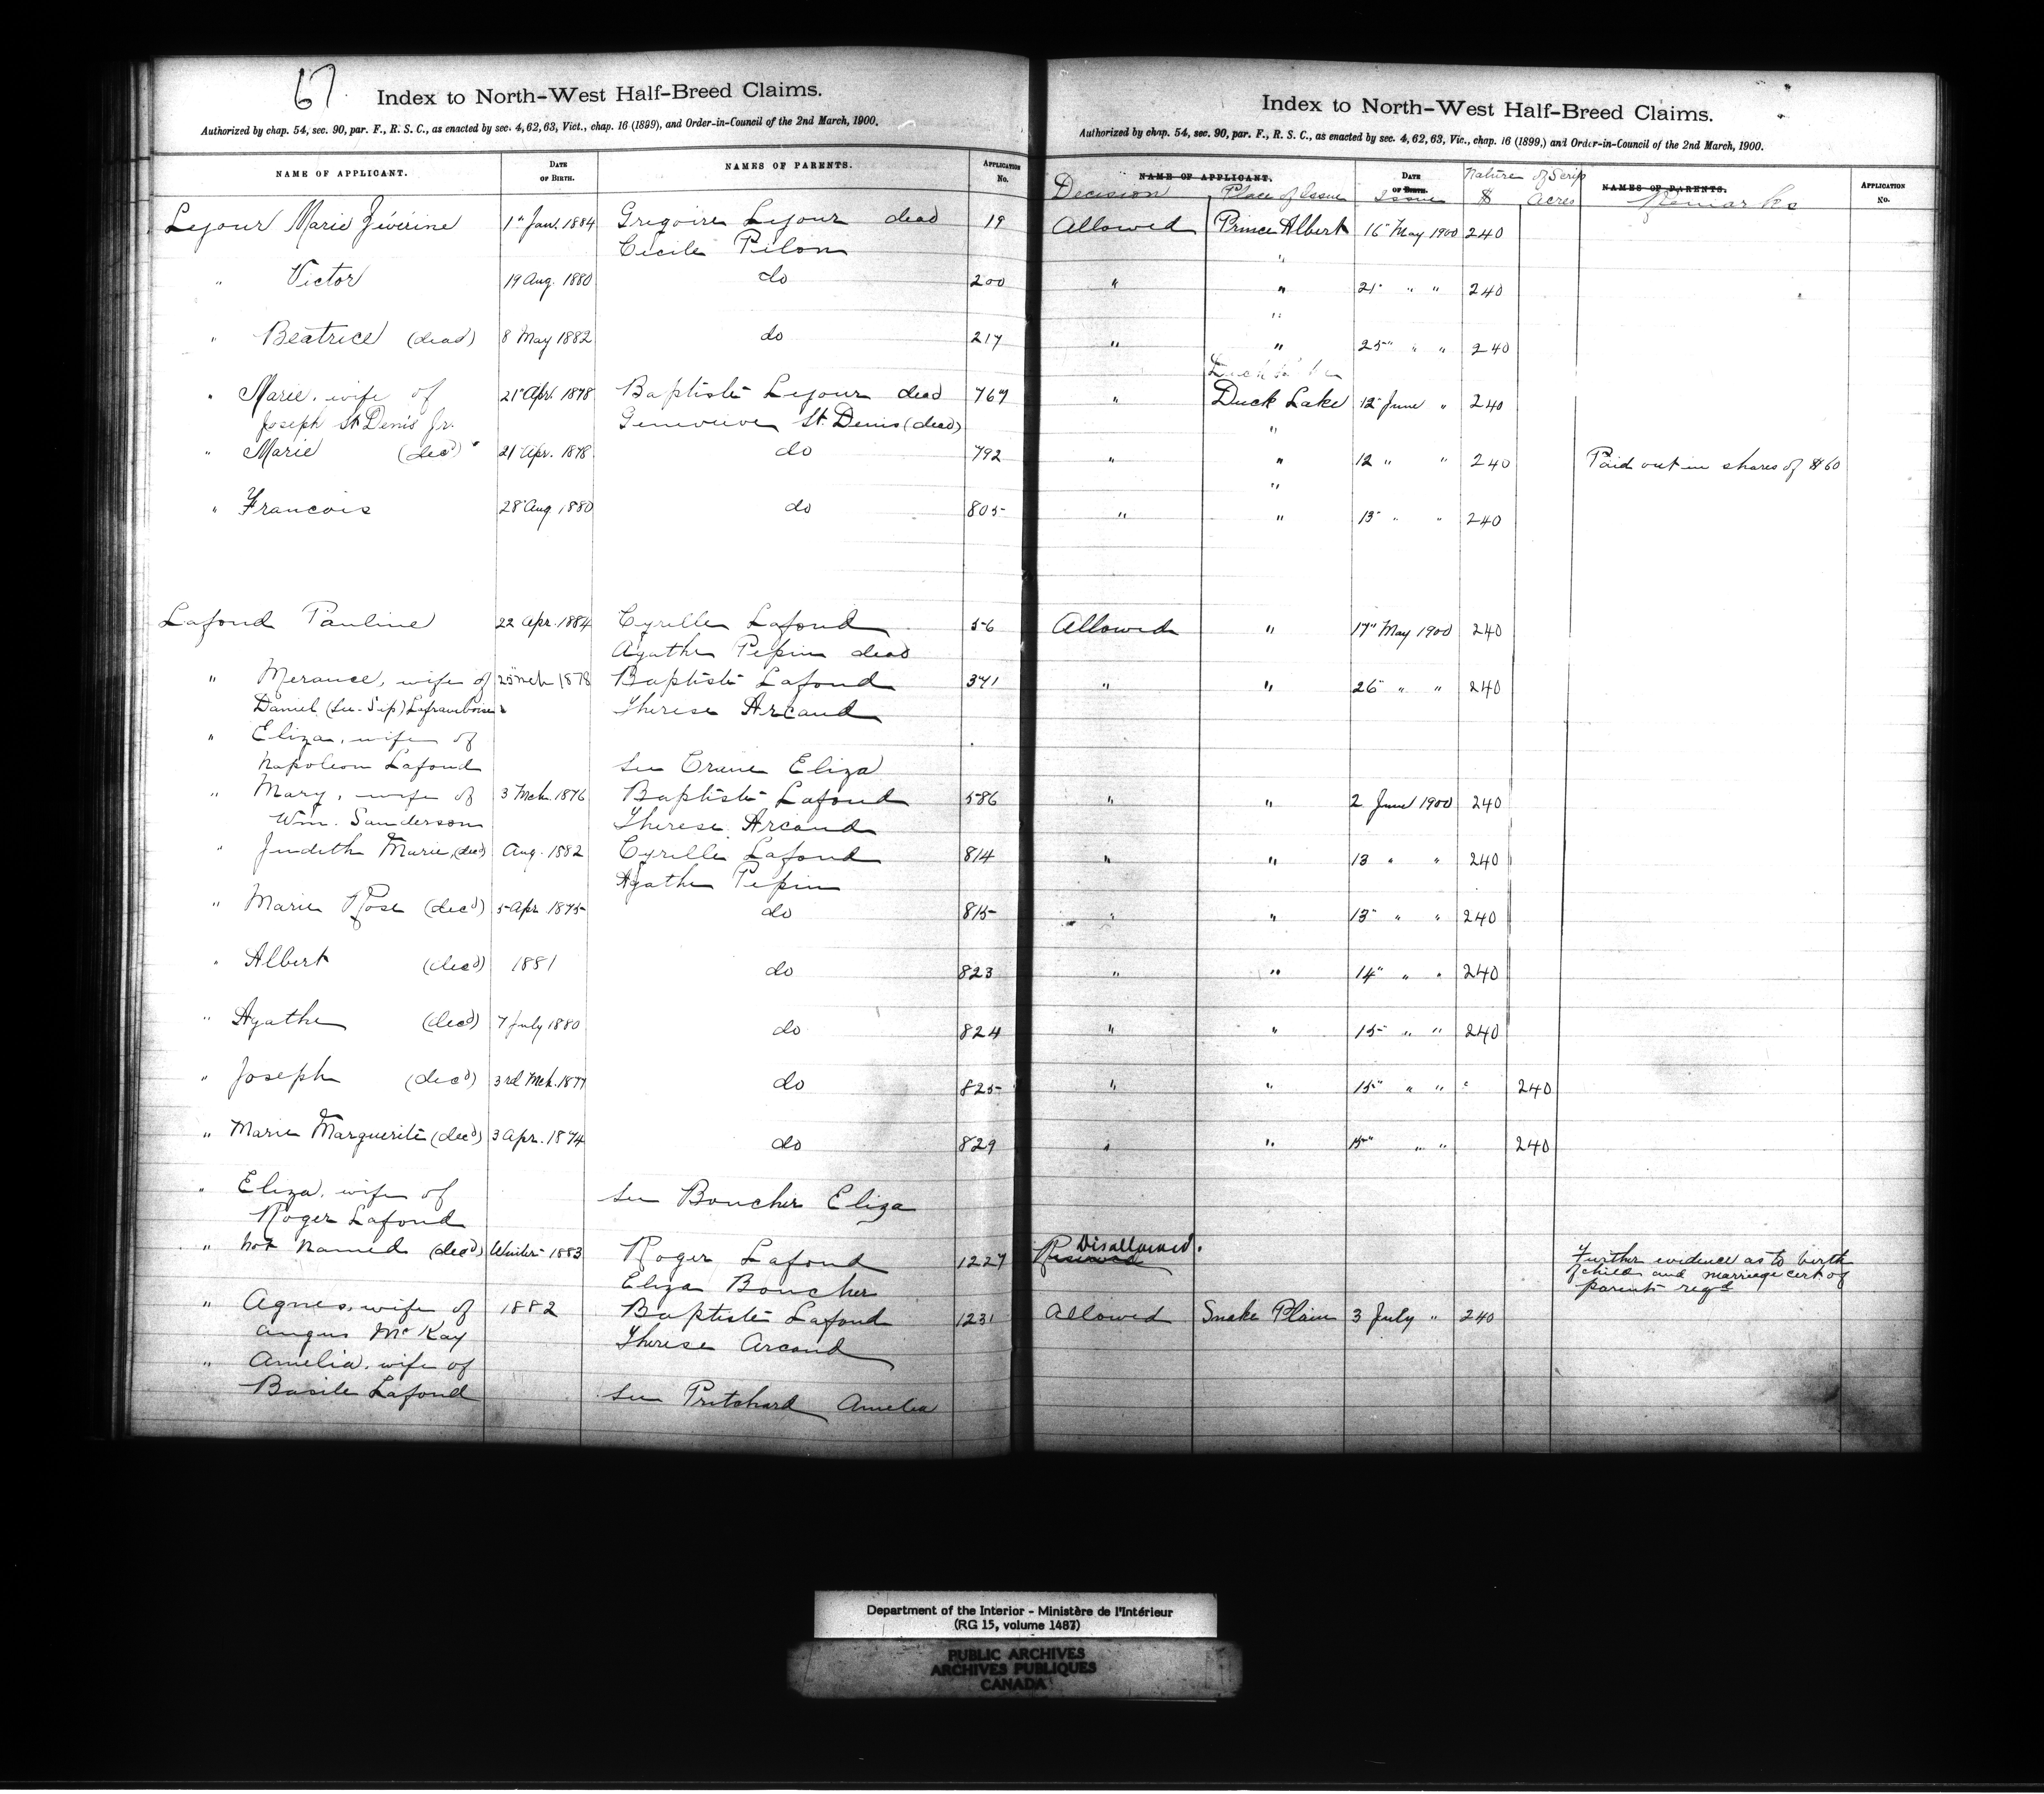 67
Index to North-West Half-Breed Claims.
Authorized by chap. 54, sec. 90, par. F., R. S. C., as enacted by sec. 4, 62, 63, Vict., chap. 16 (1899), and Order-in-Council of the 2nd March, 1900.
NAME OF APPLICANT. DATE OF BIRTH. NAMES OF PARENTS. APPLICATION No.
Lejour Marie Zéverine 1" Jan. 1884 Gregoire Lejour dead 19
Cecile Pilon
" Victor 19 Aug. 1880 do 200
" Beatrice (dead) 8 May 1882 do 217
" Marie, wife of 21" Apl. 1878 Baptiste Lejour dead 767
Joseph St Denis Jr. Genevieve St. Denis (dead)
" Marie (dec'd) 21 Apr. 1878 do 792
" Francois 28 Aug 1880 do 805
Lafond Pauline 22 Apr. 1884 Cyrille Lafond 56
Agathe Pepin dead
" Merance, wife of 25 Mch 1878 Baptiste Lafond 371
Daniel Laframboise Therese Arcand
" Eliza, wife of
Napoleon Lafond See Eliza
" Mary, wife of 3 Mch. 1876 Baptiste Lafond 586
Wm. Sanderson Therese Arcand
" Judith Marie, (dec'd) Aug. 1882 Cyrille Lafond 814
Agathe Pepin
" Marie Rose (dec'd) 5 Apr 1875 do 815
" Albert (dec'd) 1881 do 823
" Agathe (dec'd) 7 July 1880 do 824
" Joseph (dec'd) 3rd Mch. 1877 do 825
" Marie Marguerite (dec'd) 3 Apr. 1874 do 829
" Eliza, wife of See Boucher Eliza
Roger Lafond
" not named (dec'd) Winter 1883 Roger Lafond 1227
Eliza Boucher
" Agnes, wife of 1882 Baptiste Lafond 1231
Angus McKay Therese Arcand
" Amelia, wife of
Basile Lafond See Pritchard Amelia
Index to North-West Half-Breed Claims.
Authorized by chap. 54, sec. 90, par. F., R. S. C., as enacted by sec. 4, 62, 63, Vic., chap. 16 (1899,) and Order-in-Council of the 2nd March, 1900.
NAME OF APPLICANT. DATE OF BIRTH. Nature of Scrip NAMES OF PARENTS. APPLICATION No.
Decision Place of Issue Issue $ Acres Remarks
Allowed Prince Albert 16" May 1900 240
"
" " 21" " " 240
"
" " 25" " " 240
Duck Lake
" Duck Lake 12" June " 240
"
" " 12 " " 240 Paid out in shares of $60
"
" " 13" " " 240
Allowed " 17" May 1900 240
" " 26" " " 240
" " 2 June 1900 240
" " 13 " " 240
" " 13" " " 240
" " 14" " " 240
" " 15" " " 240
" " 15" " " 240
" " 15" " " 240
Disallowed.
Reserved Further evidence as to birth
of child and marriage cert of
parents reqd
Allowed Snake Plain 3 July " 240
Department of the Interior - Ministère de l'Intérieur
(RG 15, volume 1487)
PUBLIC ARCHIVES
ARCHIVES PUBLIQUES
CANADA